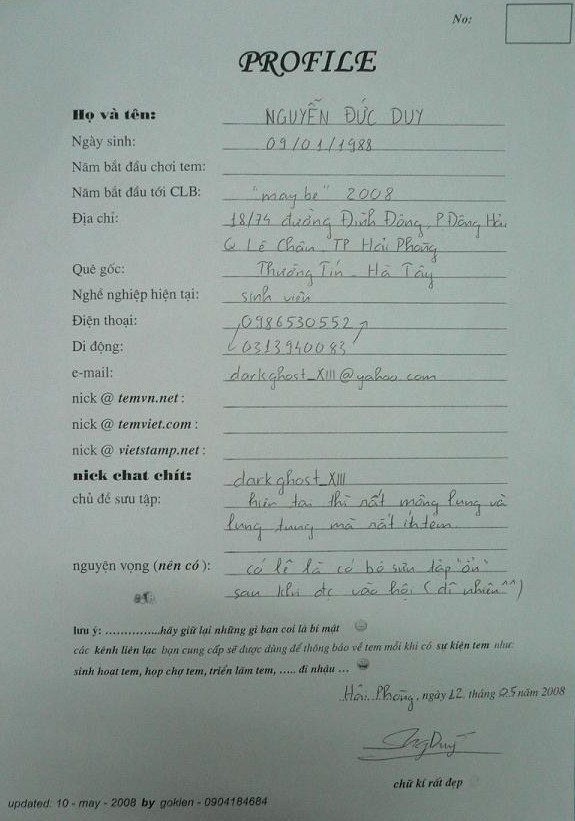 No:
PROFILE
Họ và tên: NGUYỄN ĐỨC DUY
Ngày sinh: 09/01/1988
Năm bắt đầu chơi tem:
Năm bắt đầu tới CLB: "maybe" 2008
Địa chỉ: 18/74 đường Đình Đông, P Đông Hải
Q Lê Chân _ TP Hải Phòng
Quê gốc: Thường Tín _ Hà Tây
Nghề nghiệp hiện tại: sinh viên
Điện thoại: 0986530552
Di động: 0313940083
e-mail: darkghost_XIII@yahoo.com
nick @ temvn.net :
nick @ temviet.com :
nick @ vietstamp.net :
nick chat chít: darkghost_XIII
chủ đề sưu tập: hiện tại thì rất mông lung và
lung tung mà rất ít tem
nguyện vọng (nên có): có lẽ là có bộ sưu tập "ổn"
sau khi đc vào hội (dĩ nhiên ^^)
lưu ý: ...............hãy giữ lại những gì bạn coi là bí mật
các kênh liên lạc bạn cung cấp sẽ được dùng để thông báo về tem mỗi khi có sự kiện tem như:
sinh hoạt tem, họp chợ tem, triển lãm tem, ..... đi nhậu ...
Hải Phòng, ngày 12 tháng 05 năm 2008
Duy
chữ kí rất đẹp
updated: 10 - may - 2008 by gokien - 0904184684